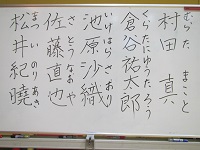 村田 真
むらた まこと
倉谷祐太郎
くらたにゆうたろう
池原沙織
いけはらさおり
佐藤直也
さとうなおや
松井紀暁
まついのりあき